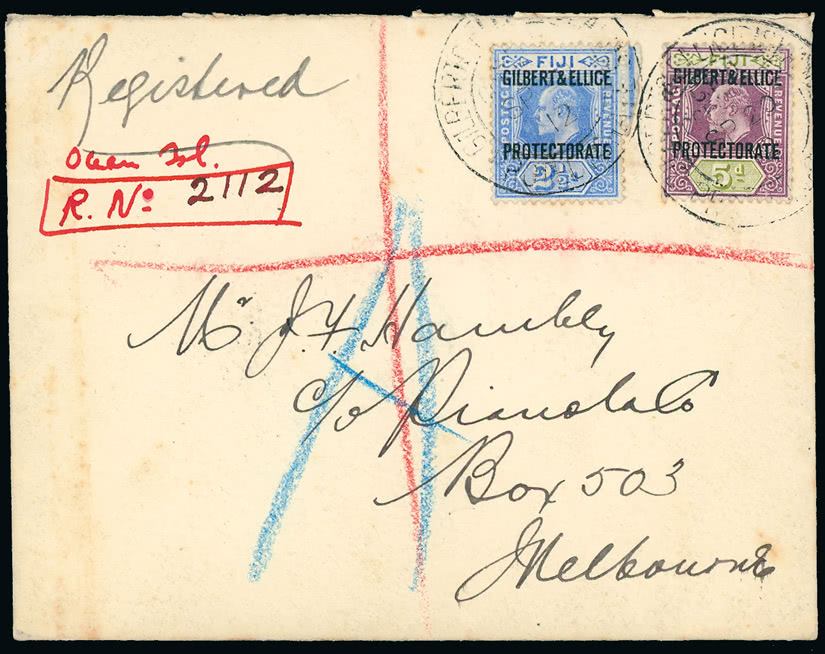 Registered
Ocean Isl.
R. No 2112
FIJI
GILBERT & ELLICE
POSTAGE
REVENUE
PROTECTORATE
2½d
FIJI
GILBERT & ELLICE
POSTAGE
REVENUE
PROTECTORATE
5d
Mr. J. F. Hambly
c/o Pianola Co
Box 503
Melbourne